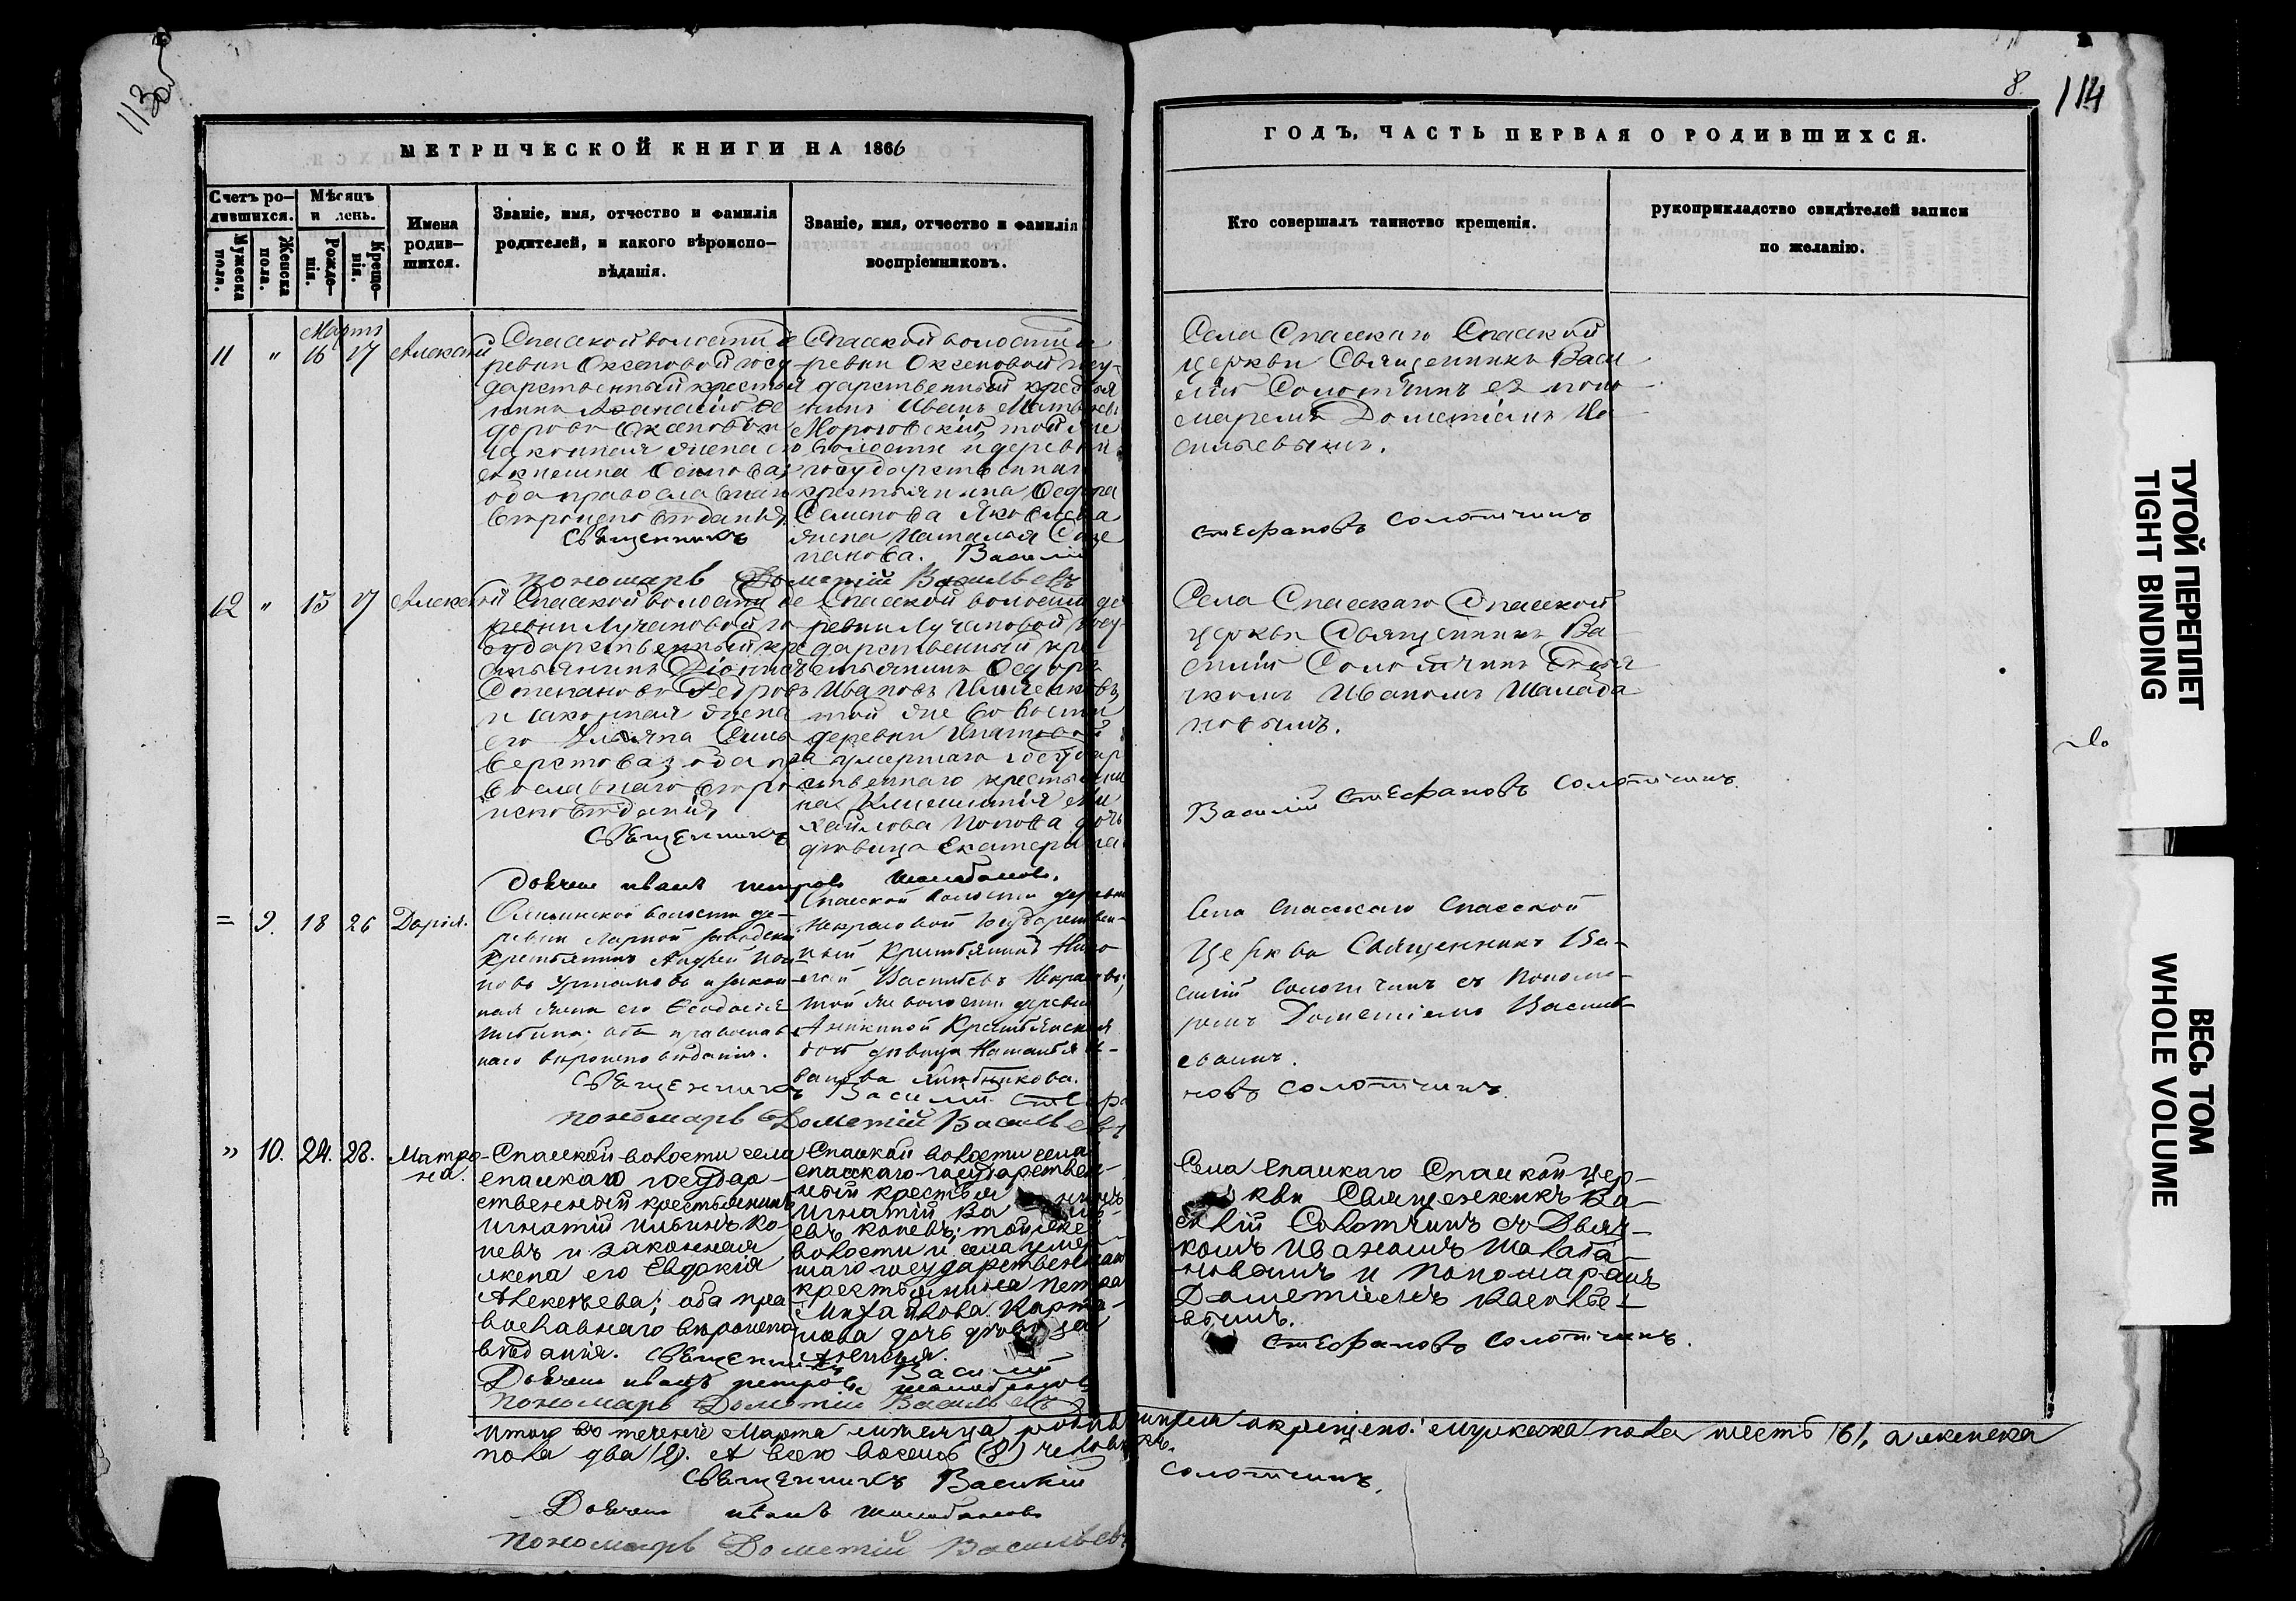 113об
МЕТРИЧЕСКОЙ КНИГИ НА 1866
Счетъ ро-
дившихся.
Мужеска
пола.
Женска
пола.
Мѣсяцъ
и день.
Рожде-
нія.
Креще-
нія.
Имена
родив-
шихся.
Званіе, имя, отчество и фамилія
родителей, и какого вѣроиспо-
вѣданія.
Званіе, имя, отчество и фамилія
воспріемниковъ.
Мартъ
11 " 16 17 Алексѣй
Спасской волости де
ревни Оксеновой госу
дарственный крестья
нинъ Афанасій Ѳе
доровъ Оксеновъ и
законная жена его
Осипова
оба православнаго
вѣроисповѣданія.
Священникъ
Спасской волости де
ревни Оксеновой госу-
дарственный крестья
нинъ Иванъ Матвѣевъ
той же
волости и деревни
государственнаго
крестьянина Ѳедора
Семенова Яковлева
жена Наталья Сте
панова. Василій
пономарь Дометій Васильевъ
12 " 15 17 Алексѣй
Спасской волости де
ревни Лучановой го
сударственный кре
стьянинъ Діонисъ
Степановъ Федровъ
и законная жена
его Ульяна Силь
верстова; оба пра
вославнаго вѣро
исповѣданія
Священникъ
Спасской волости де
ревни Лучановой госу-
дарственный кре
стьянинъ Ѳедоръ
Ивановъ
той же волости
деревни Ипатовой
умершаго государ
ственнаго крестьяни
на Климентія Ми
хайлова Попова дочь
дѣвица Екатерина.
Дьячекъ иванъ петровъ Шалабановъ.
= 9. 18 26 Дарія.
волости де-
ревни
крестьянинъ Андрей
и закон
ная жена его Ѳеодосія
оба православ
наго вѣроисповѣданія.
Священникъ
Спасской волости деревни
Некрасовой государствен-
ный крестьянинъ Нико-
лай Васильевъ Некрасовъ;
той же волости деревни
Аникиной крестьянская
дочь дѣвица Наталья И-
ванова
Василій Стефа
пономарь Дометій Васильевъ
" 10. 24. 28. Матро-
на.
Спасской волости села
спаскаго государ-
ственный крестьянинъ
Игнатій Ильинъ Ко-
невъ и законная
жена его Евдокія
Алексѣева; оба пра-
вославнаго вѣроиспо
вѣданія. Священникъ
Спаской волости села
спасскаго государствен-
ный крестья нинъ
Игнатій Ва силь-
евъ Коневъ; той же
волости и села умер-
шаго государственнаго
крестьянина Петра
Михайлова Карта-
шова дочь дѣвица
Василій
Дьячекъ иванъ петровъ шалабановъ
пономарь Дометій Васильевъ
8.
114
ГОДЪ, ЧАСТЬ ПЕРВАЯ О РОДИВШИХСЯ.
Кто совершалъ таинство крещенія.
рукоприкладство свидѣтелей записи
по желанію.
Села Спасскаго Спасской
церкви Священникъ Васи
лій Солотчинъ съ поно-
маремъ Дометіемъ Ва
сильевымъ.
стефановъ солотчинъ
Села Спасскаго Спасской
церкви Священникъ Ва
силій Солотчинъ съ дья
чкомъ Иваномъ Шалаба
новымъ.
Василій Стефановъ Солотчинъ.
Села Спасскаго Спасской
Церкви Священникъ Ва-
силій Солотчинъ съ Понома-
ремъ Дометіемъ Василь-
евымъ.
новъ Солотчинъ.
Села Спаскаго Спаской цер-
кви Священникъ Ва-
силій Солотчинъ съ Дьяч-
комъ Иваномъ Шалаба-
новымъ и Пономаремъ
Дометіемъ Василье-
вымъ.
Стефановъ Солотчинъ.
Итого въ теченіе Марта мѣсяца родившихся и крещено: мужеска пола шесть /6/, а женска
пола два /2/. А всего восемь (8) человѣкъ.
Священникъ Василій Солотчинъ.
Дьячекъ иванъ шалабановъ
Пономарь Дометій Васильевъ
ТУГОЙ ПЕРЕПЛЕТ
TIGHT BINDING
ВЕСЬ ТОМ
WHOLE VOLUME